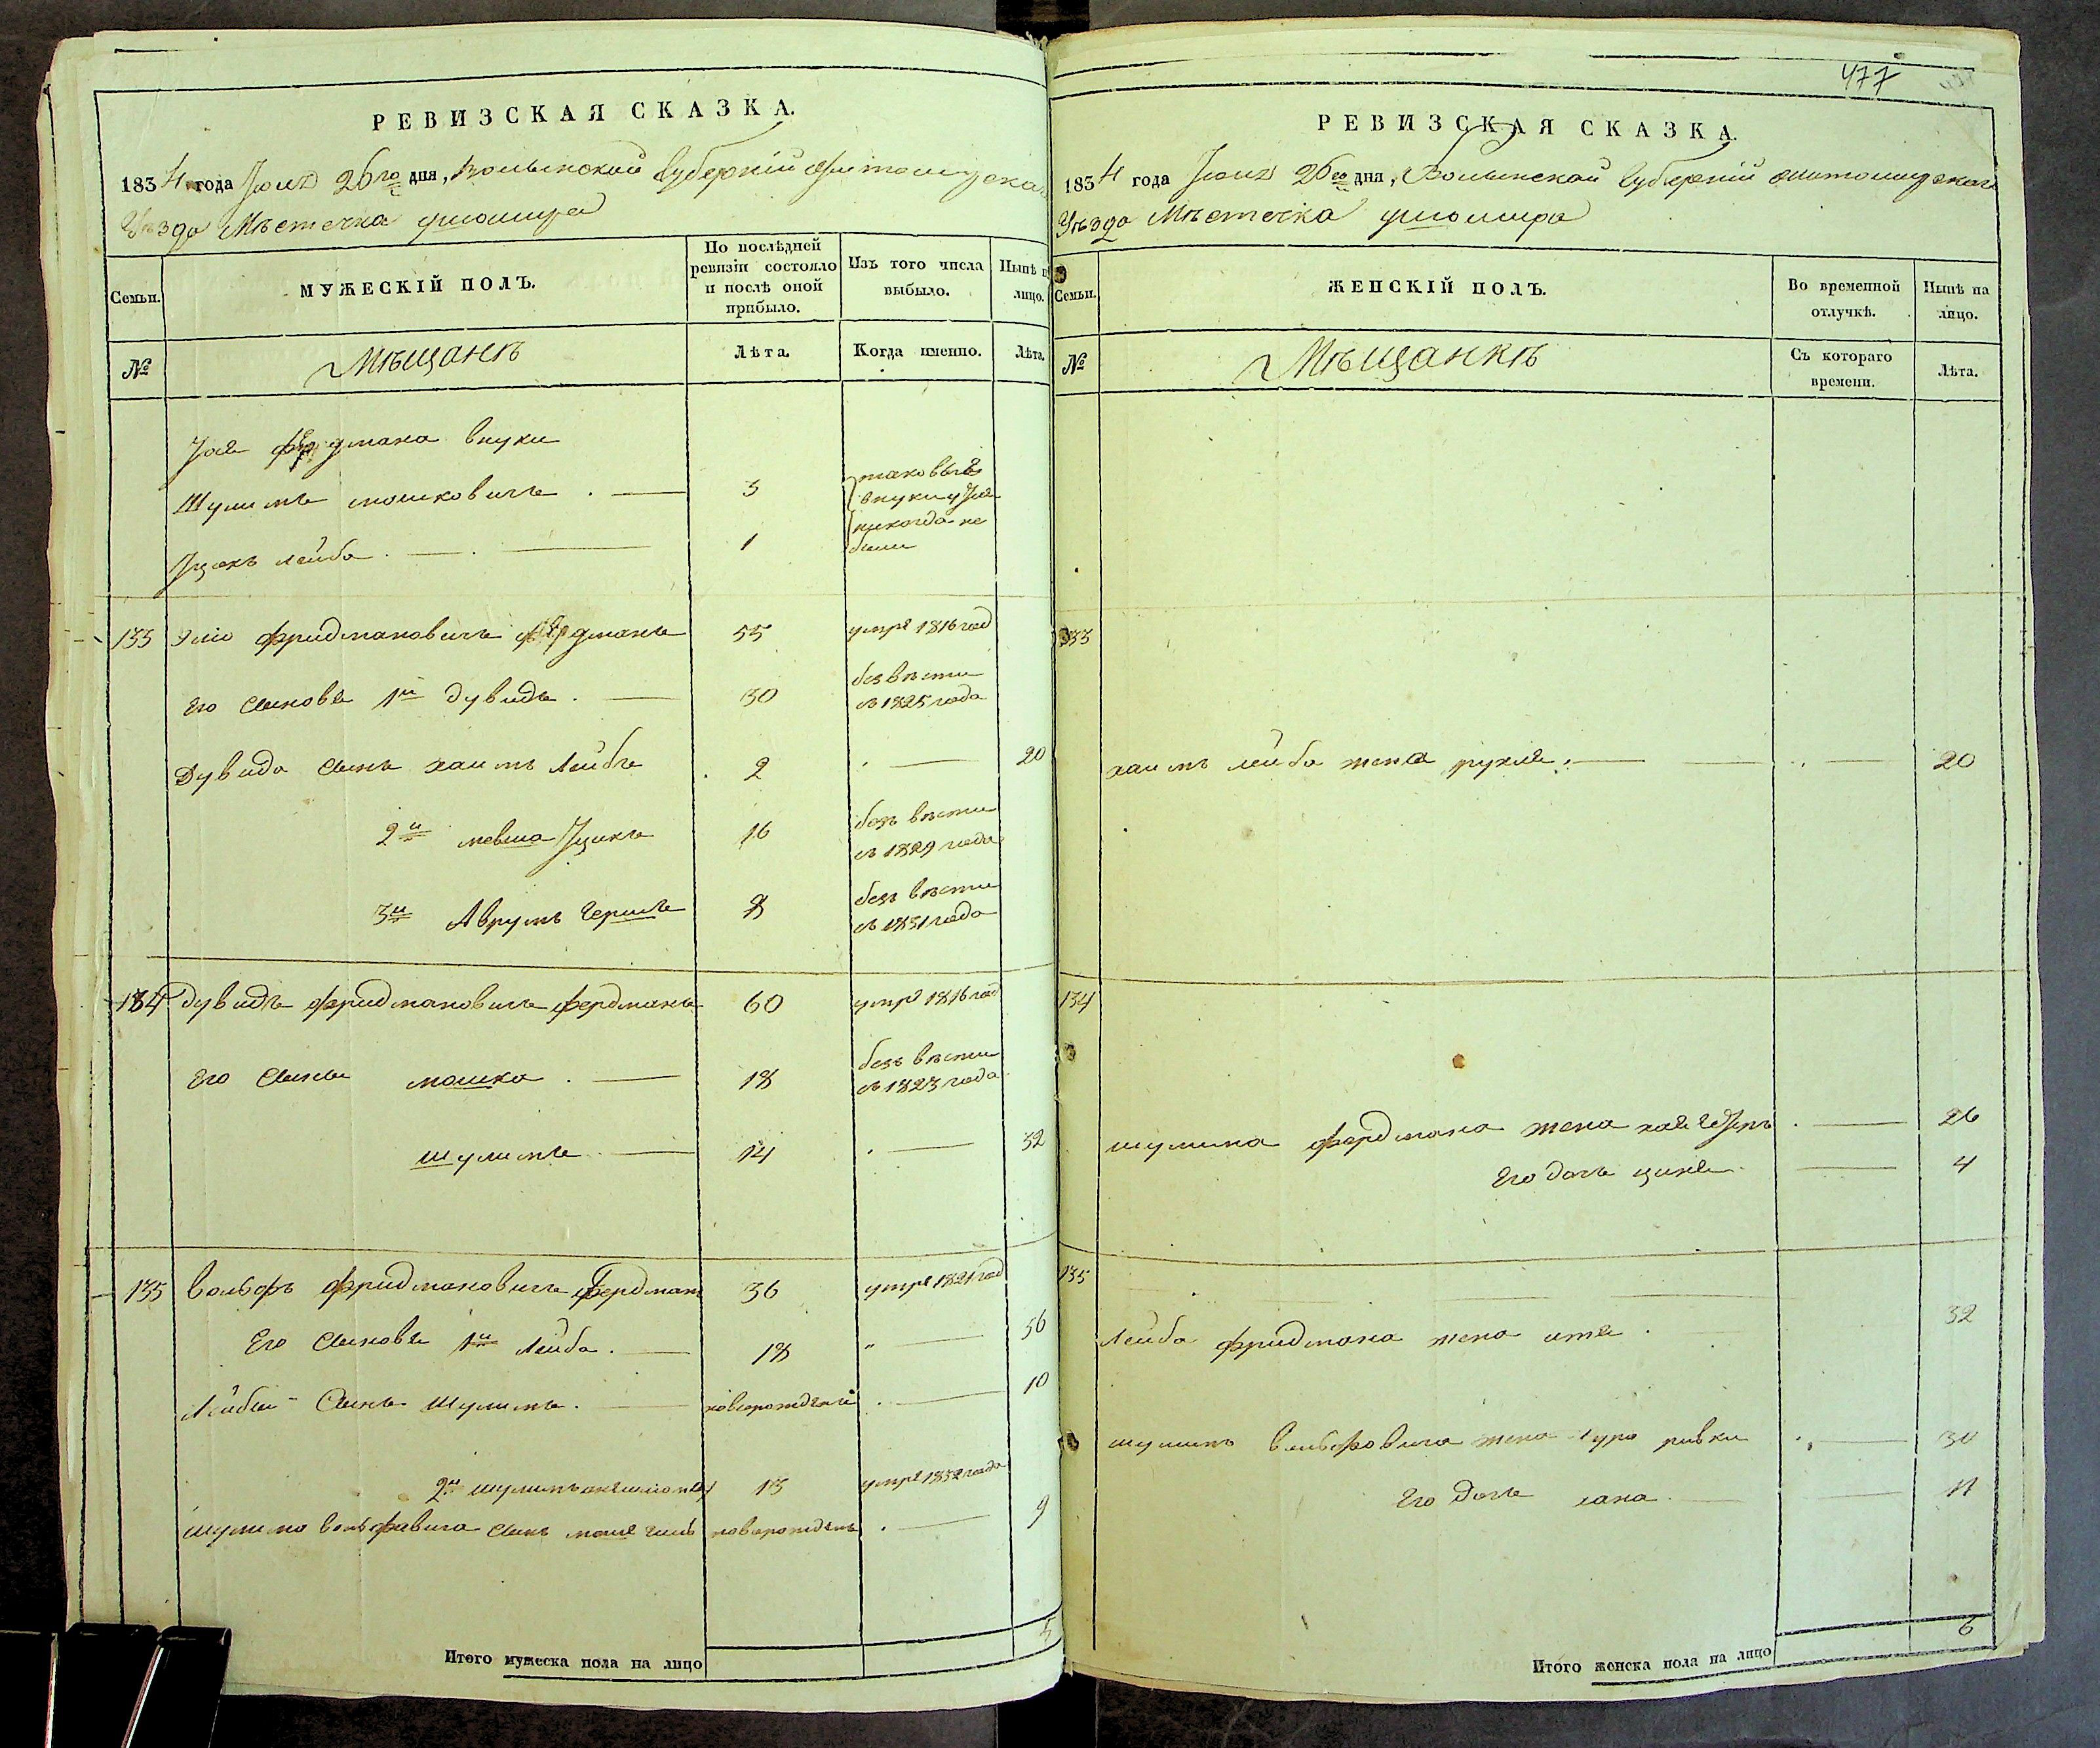 РЕВИЗСКАЯ СКАЗКА.
1834 года Іюня 26го дня, Волынской Губерніи Житомирска
Уѣзда Мѣстечка
Семьи.
МУЖЕСКІЙ ПОЛЪ.
По послѣдней ревизіи состояло и послѣ оной прибыло.
Изъ того числа выбыло.
Нынѣ н лицо.
№
Мѣщанъ
Лѣта.
Когда именно.
Лѣта.
фердмана внуки
Шулимъ мошковичъ 3 таковые
внуки у
Ицекъ лейба 1 никогда не
были
133 Эліо фридмановичъ фердманъ 55 умре 1816 год
Его Сыновя 1й дувидъ 30 безвѣсти
съ 1825 года
Дувида Сынъ хаимъ Лейбъ 2 20
2й Ицикъ 16 безъ вѣсти
съ 1829 года
3й Аврумъ Гершъ 8 безъ вѣсти
съ 1831 года
134 Дувидъ фридмановичъ фердманъ 60 умре 1816 год
Его Сыны мошко 18 безъ вѣсти
съ 1823 года
шулимъ 14 32
135 Вольфъ фридмановичъ фердман 36 умре 1821 год
Его Сыновя 1й Лейба 18 36
Лейбы Сынъ Шулимъ новорожденый 10
2й шулимъ 13 умре 1832 года
шулима вольфовича Сынъ новорожденъ 9
Итого мужеска пола на лицо 5
477
РЕВИЗСКАЯ СКАЗКА.
1834 года Іюня 26го дня, Волынской Губерніи Житомирскаго
Уѣзда Мѣстечка
Семьи.
ЖЕНСКІЙ ПОЛЪ.
Во временной отлучкѣ.
Нынѣ на лицо.
№
Мѣщанкъ
Съ котораго времени.
Лѣта.
133
хаимъ лейба жена рухля 20
134
шулима фердмана жена хая 26
Его дочь 4
135
Лейба фридмана жена итя 32
шулимъ вольфовича жена сура ривки 30
Его дочь хана 11
Итого женска пола на лицо 6